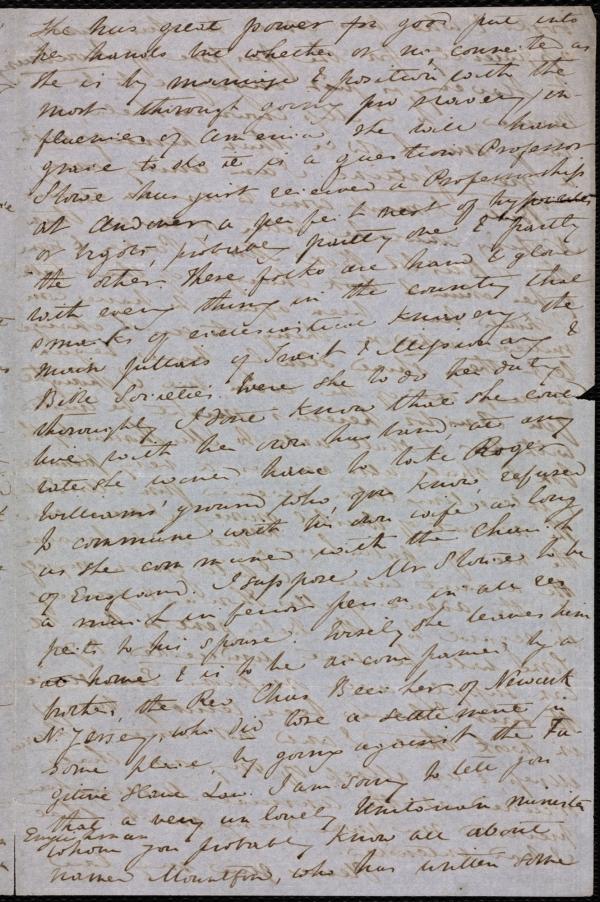 She has great power for good put into
her hands but whether or no, connected as
she is by marriage & position with the
most thorough going pro slavery in-
fluences of America, she will have
grace to do it is a question. Professor
Stowe has just received a Professorship
at Andover a perfect nest of hypocrites
or bigots, probably partly one & partly
the other. These folks are hand & glove
with every thing in the country that
smacks of ecclesiastical knavery, the
main pillars of Tract & Missionary &
Bible Societies. Were she to do her duty
thoroughly I dont know that she could
live with her own husband, at any
rate she would have to take Roger
Williams' ground, who, you know, refused
to commune with his own wife as long
as she communed with the Church
of England. I suppose Mr Stowe to be
a much inferior person in all res-
pects to his spouse. Wisely she leaves him
at home & is to be accompanied by a
brother, the Rev Chas Beecher of Newark
N. Jersey, who did lose a settlement in
some place, by going against the Fu-
gitive Slave Law. I am sorry to tell you
that a very unlovely Unitarian minister
Englishman
whom you probably know all about
named Mountford, who has written some